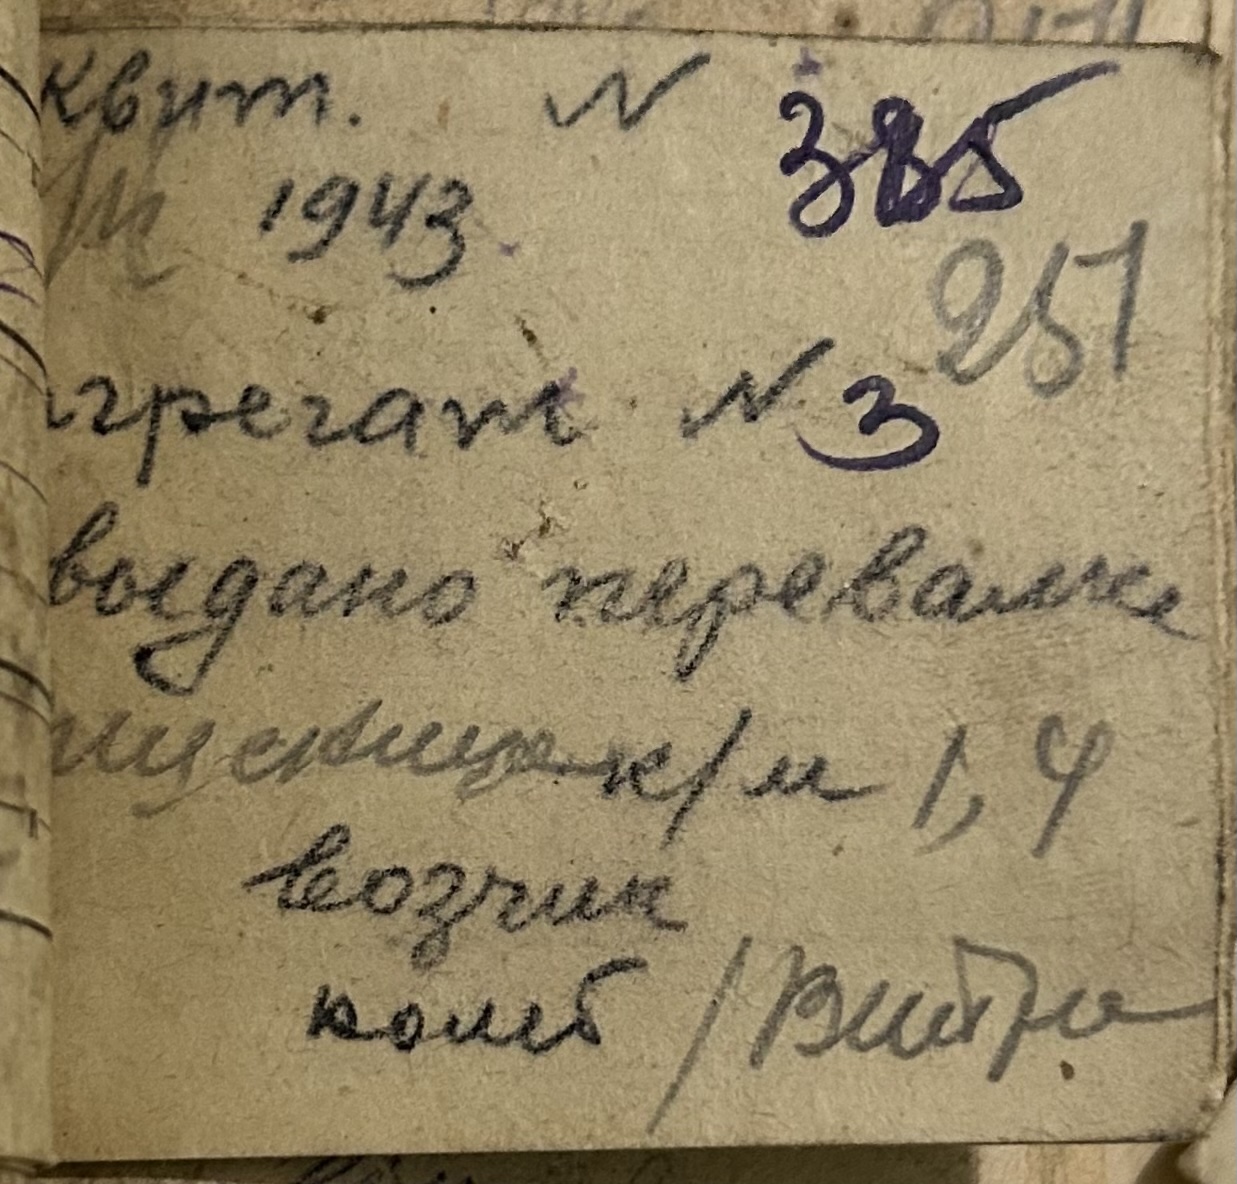 квит. N 385
1943.
251
агрегат N 3
выдано перевалке
пшеницы к/м 1,4
возчик
комб /